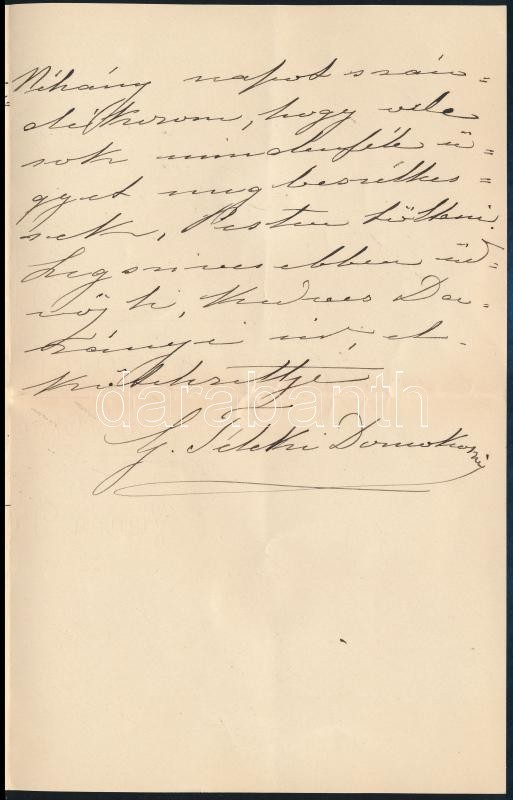 Néhány napot szán=
dékozom, hogy vele
sok mindenféle ü=
gyet megbeszélhes=
sek, Pesten tölteni.
Legszívesebben üd=
vözli, kedves Da=
rányi
G. Teleki Domokosné
darabanth